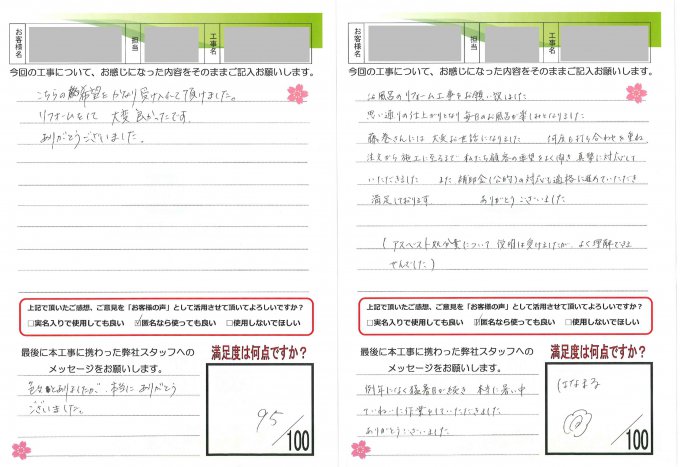 お客様名
担当
工事名
今回の工事について、お感じになった内容をそのままご記入お願いします。
こちらの希望をかなり受け入れて頂けました。
リフォームをして 大変良かったです。
ありがとうございました。
上記で頂いたご感想、ご意見を「お客様の声」として活用させて頂いてよろしいですか？
□実名入りで使用しても良い ☑匿名なら使っても良い □使用しないでほしい
最後に本工事に携わった弊社スタッフへの
メッセージをお願いします。
色々とありましたが、本当に ありがとう
ございました。
満足度は何点ですか？
95/100
お客様名
担当
工事名
今回の工事について、お感じになった内容をそのままご記入お願いします。
お風呂のリフォーム工事をお願い致しました
思い通りの仕上がりとなり毎日のお風呂が楽しみとなりました
藤巻さんには大変お世話になりました 何度も打ち合わせを重ね
注文から施工に至るまで 私たち顧客の要望をよく聞き 真摯に対応して
いただきました また 補助金(公的)の対応も適格に進めていただき
満足しております ありがとうございました
(アスベスト処分業について 説明は受けましたが、よく理解できま
せんでした)
上記で頂いたご感想、ご意見を「お客様の声」として活用させて頂いてよろしいですか？
□実名入りで使用しても良い ☑匿名なら使っても良い □使用しないでほしい
最後に本工事に携わった弊社スタッフへの
メッセージをお願いします。
例年になく猛暑日が続き 本当に暑い中
ていねいに作業をしていただきました
ありがとうございました
満足度は何点ですか？
はなまる
/100